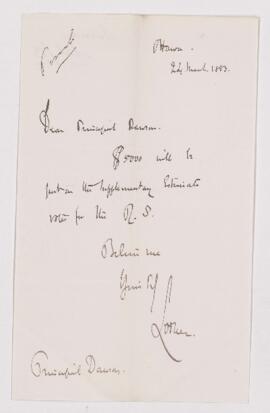 Private
Ottawa.
March 1883.
Dear Principal Dawson
$5000 will be
put in the Supplementary Estimate
votes for the R. S.
Believe me
Yours
Lorne.
Principal Dawson.